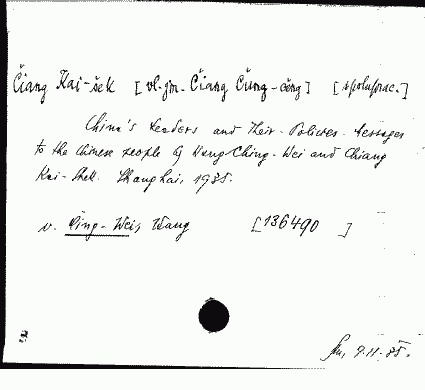 Čiang Kai-šek [vl. jm. Čiang Čung-čeng] [spoluprac.]
China's Leaders and Their Policies. Messages
to the Chinese people by Wang Ching-Wei and Chiang
Kai-Shek. Shanghai, 1935.
v. Ching-Wei, Wang [136490 ]
9.11.85.